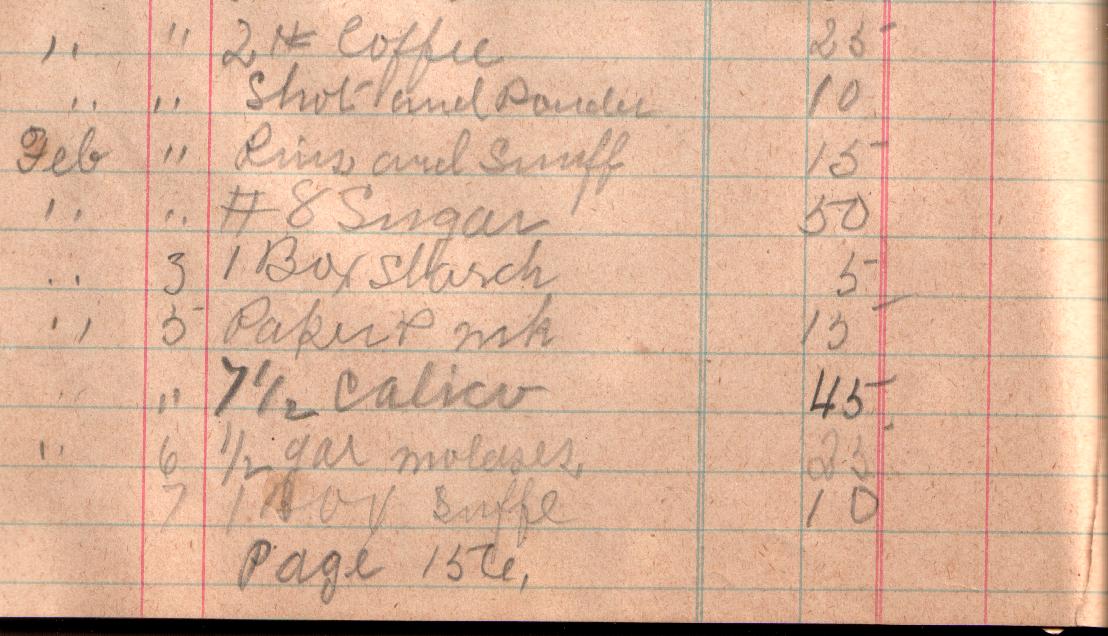 " " 2 # Coffee 25
" " Shot and Powder 10
Feb " and Snuff 15
" " # 8 Sugar 50
" 3 1 Box Starch 5
" 5 Paper & ink 15
" 7 1/2 Calico 45
" 6 1/2 gal molases 25
7 1 Box 10
Page 156,